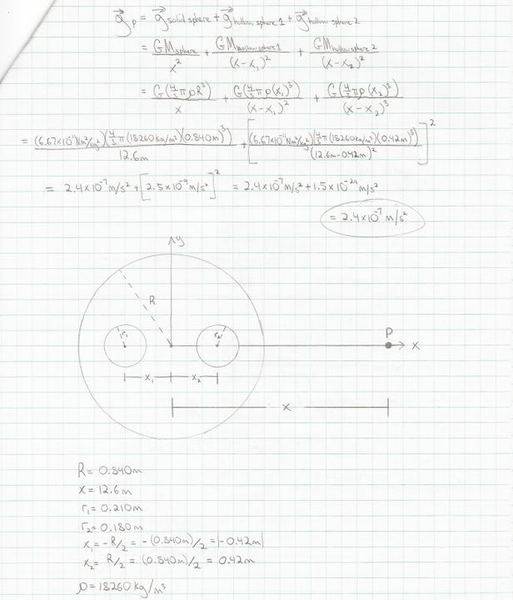 g⃗p = g⃗ solid sphere + g⃗ hollow sphere 1 + g⃗ hollow sphere 2
= GM sphere / x² + GM hollow sphere 1 / (x-x₁)² + GM hollow sphere 2 / (x-x₂)²
= G(4/3 πρR³) / x + G(4/3 πρ(x₁)³) / (x-x₁)² + G(4/3 πρ(x₂)³) / (x-x₂)²
= (6.67×10⁻¹¹Nm²/kg²)(4/3 π(18260kg/m³)(0.840m)³) / 12.6m + [(6.67×10⁻¹¹Nm²/kg²)(4/3 π(18260kg/m³)(0.42m)³) / (12.6m-0.42m)²]²
= 2.4×10⁻⁷m/s² + [2.5×10⁻⁹m/s²]² = 2.4×10⁻⁷m/s² + 1.5×10⁻²⁴m/s²
= 2.4×10⁻⁷m/s²
y
R
r₁ r₂ P
x
x₁ x₂
x
R = 0.840m
x = 12.6m
r₁ = 0.210m
r₂ = 0.180m
x₁ = -R/2 = -(0.840m)/2 = |-0.42m|
x₂ = R/2 = (0.840m)/2 = 0.42m
ρ = 18260kg/m³